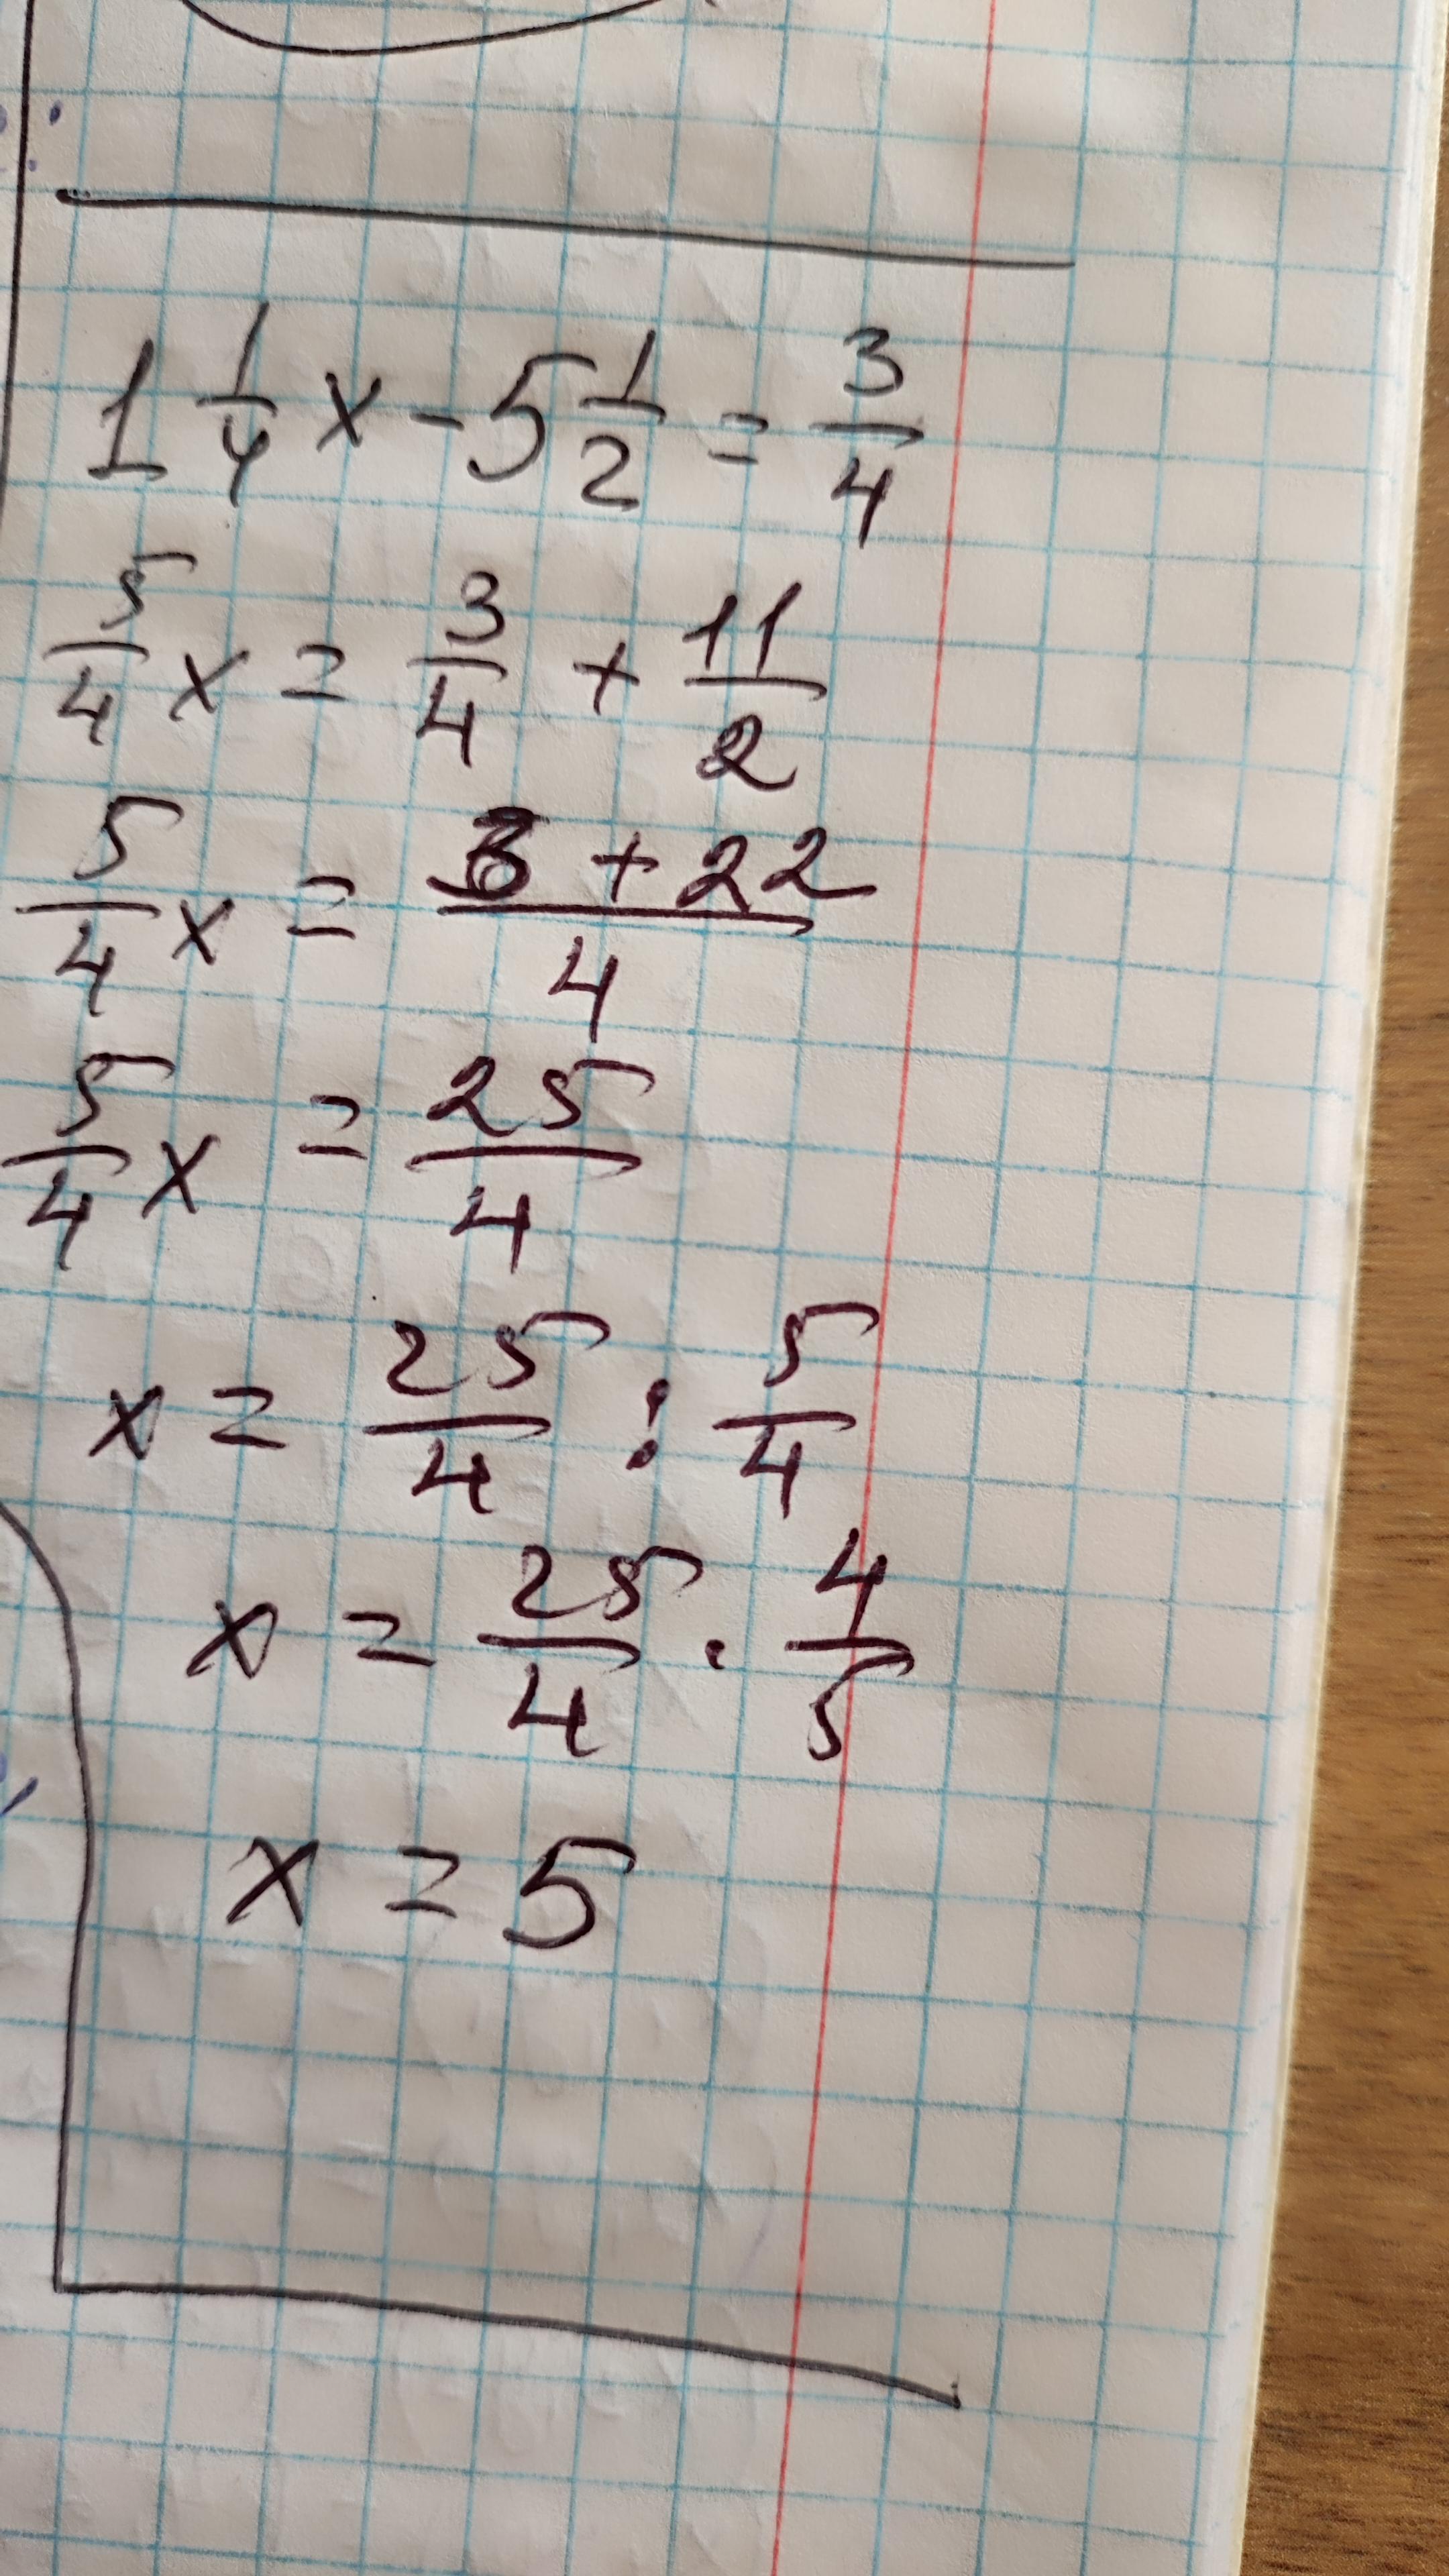 1 1/4 x - 5 1/2 = 3/4
5/4 x = 3/4 + 11/2
5/4 x = (3 + 22)/4
5/4 x = 25/4
x = 25/4 : 5/4
x = 25/4 · 4/5
x = 5